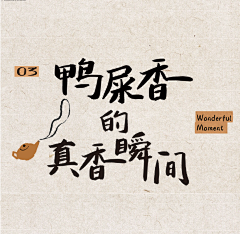 03
鸭屎香
的
真香瞬间
Wonderful
Moment